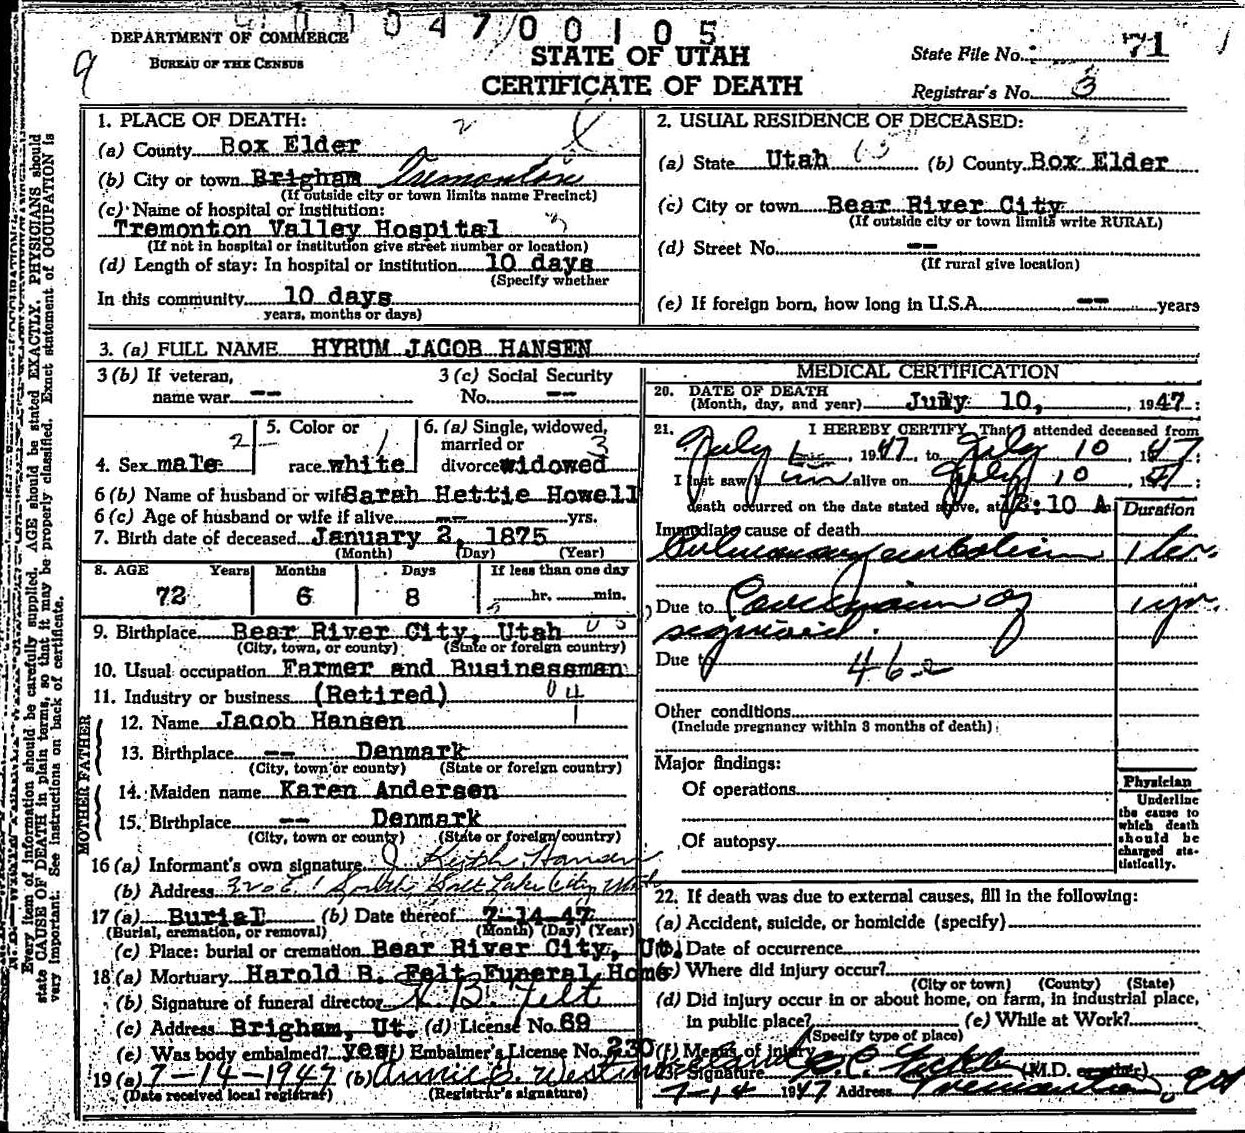 0 0 0 4 7 0 0 1 0 5
9
DEPARTMENT OF COMMERCE
BUREAU OF THE CENSUS
STATE OF UTAH
CERTIFICATE OF DEATH
State File No. 71
Registrar's No. 3
1. PLACE OF DEATH:
(a) County Box Elder
(b) City or town Brigham Tremonton
(If outside city or town limits name Precinct)
(c) Name of hospital or institution:
Tremonton Valley Hospital
(If not in hospital or institution give street number or location)
(d) Length of stay: In hospital or institution 10 days
(Specify whether
In this community 10 days
years, months or days)
2. USUAL RESIDENCE OF DECEASED:
(a) State Utah (b) County Box Elder
(c) City or town Bear River City
(If outside city or town limits write RURAL)
(d) Street No. --
(If rural give location)
(e) If foreign born, how long in U.S.A. -- years
3. (a) FULL NAME HYRUM JACOB HANSEN
3 (b) If veteran,
name war --
3 (c) Social Security
No. --
4. Sex male
5. Color or
race white
6. (a) Single, widowed,
married or
divorced widowed
6 (b) Name of husband or wife Sarah Hettie Howell
6 (c) Age of husband or wife if alive -- yrs.
7. Birth date of deceased January 2, 1875
(Month) (Day) (Year)
8. AGE Years Months Days If less than one day
72 6 8 hr. min.
9. Birthplace Bear River City, Utah
(City, town, or county) (State or foreign country)
10. Usual occupation Farmer and Businessman
11. Industry or business (Retired)
FATHER
12. Name Jacob Hansen
13. Birthplace -- Denmark
(City, town or county) (State or foreign country)
MOTHER
14. Maiden name Karen Andersen
15. Birthplace -- Denmark
(City, town or county) (State or foreign country)
16 (a) Informant's own signature J Keith Hansen
(b) Address Salt Lake City Utah
17 (a) Burial (b) Date thereof 7-14-47
(Burial, cremation, or removal) (Month) (Day) (Year)
(c) Place: burial or cremation Bear River City, Ut.
18 (a) Mortuary Harold B. Felt Funeral Home
(b) Signature of funeral director H. B. Felt
(c) Address Brigham, Ut. (d) License No. 69
(e) Was body embalmed? yes (f) Embalmer's License No. 230
19 (a) 7-14-1947 (b)
(Date received local registrar) (Registrar's signature)
MEDICAL CERTIFICATION
20. DATE OF DEATH
(Month, day, and year) July 10, 1947
21. I HEREBY CERTIFY, That I attended deceased from
July 1, 1947, to July 10 1947
I last saw him alive on July 10 1947
death occurred on the date stated above, at :10 A Duration
Immediate cause of death
Pulmonary embolism 1 hr.
Due to Carcinoma of 1 yr.
sigmoid.
Due to 46
Other conditions
(Include pregnancy within 3 months of death)
Major findings:
Of operations
Of autopsy
Physician
Underline
the cause to
which death
should be
charged sta-
tistically.
22. If death was due to external causes, fill in the following:
(a) Accident, suicide, or homicide (specify)
(b) Date of occurrence
(c) Where did injury occur?
(City or town) (County) (State)
(d) Did injury occur in or about home, on farm, in industrial place,
in public place? (e) While at Work?
(Specify type of place)
(f) Means of injury
23. Signature (M.D. or other)
7-14 1947 Address Tremonton, Ut
Every item of information should be carefully supplied. AGE should be stated EXACTLY. PHYSICIANS should
state CAUSE OF DEATH in plain terms, so that it may be properly classified. Exact statement of OCCUPATION is
very important. See instructions on back of certificate.